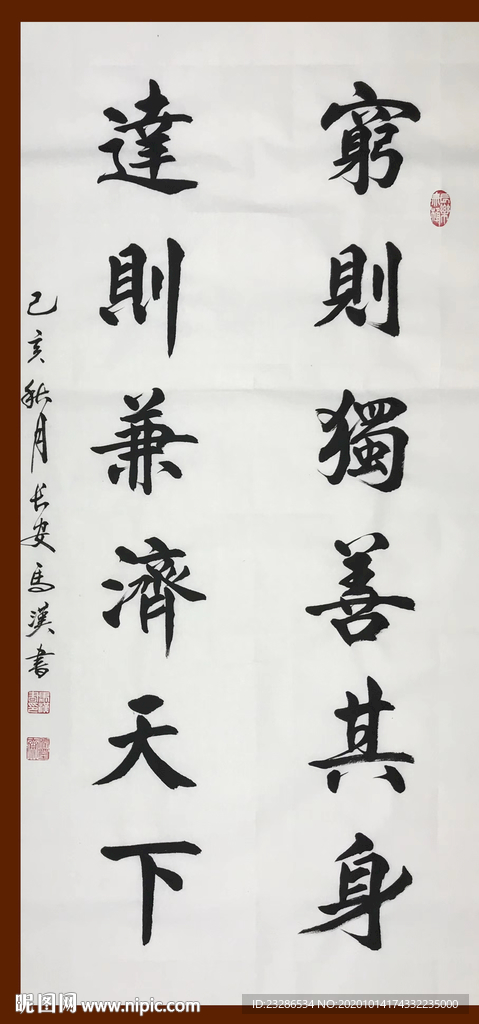 窮則獨善其身
達則兼濟天下
己亥秋月長安馬漢書
昵图网 www.nipic.com
ID:23286534 NO:20201014174332235000